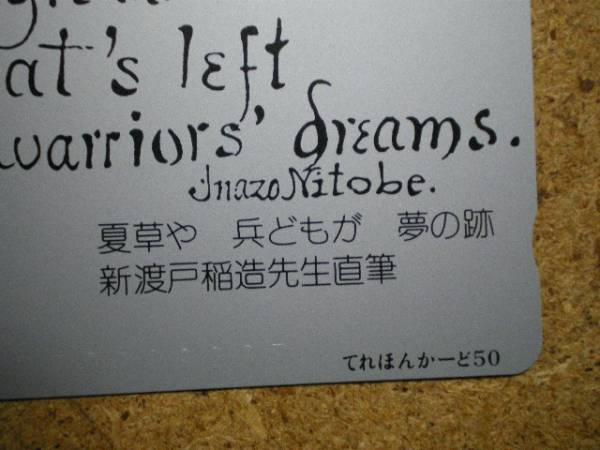 at's left
warriors' dreams.
Inazo Nitobe.
夏草や 兵どもが 夢の跡
新渡戸稲造先生直筆
てれほんかーど50